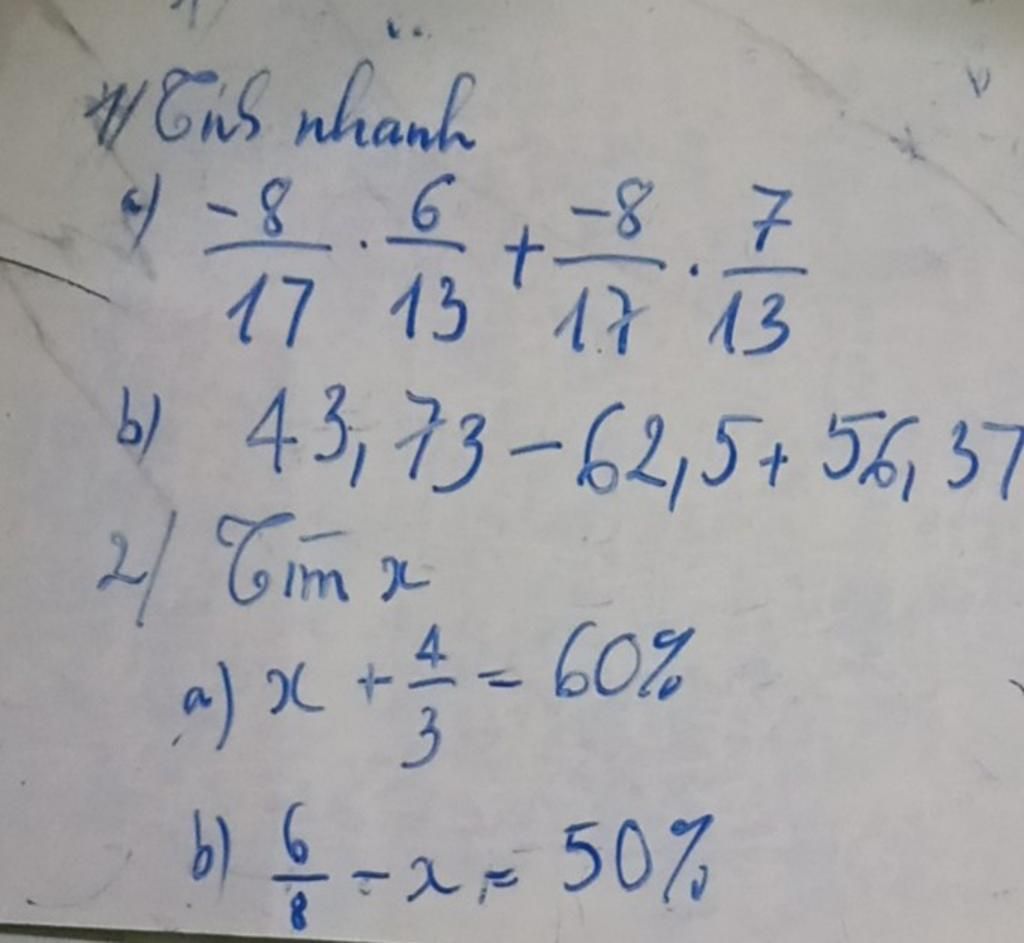 1/ Tính nhanh
a) -8/17 . 6/13 + -8/17 . 7/13
b) 43,73 - 62,5 + 56,37
2/ Tìm x
a) x + 4/3 = 60%
b) 6/8 - x = 50%